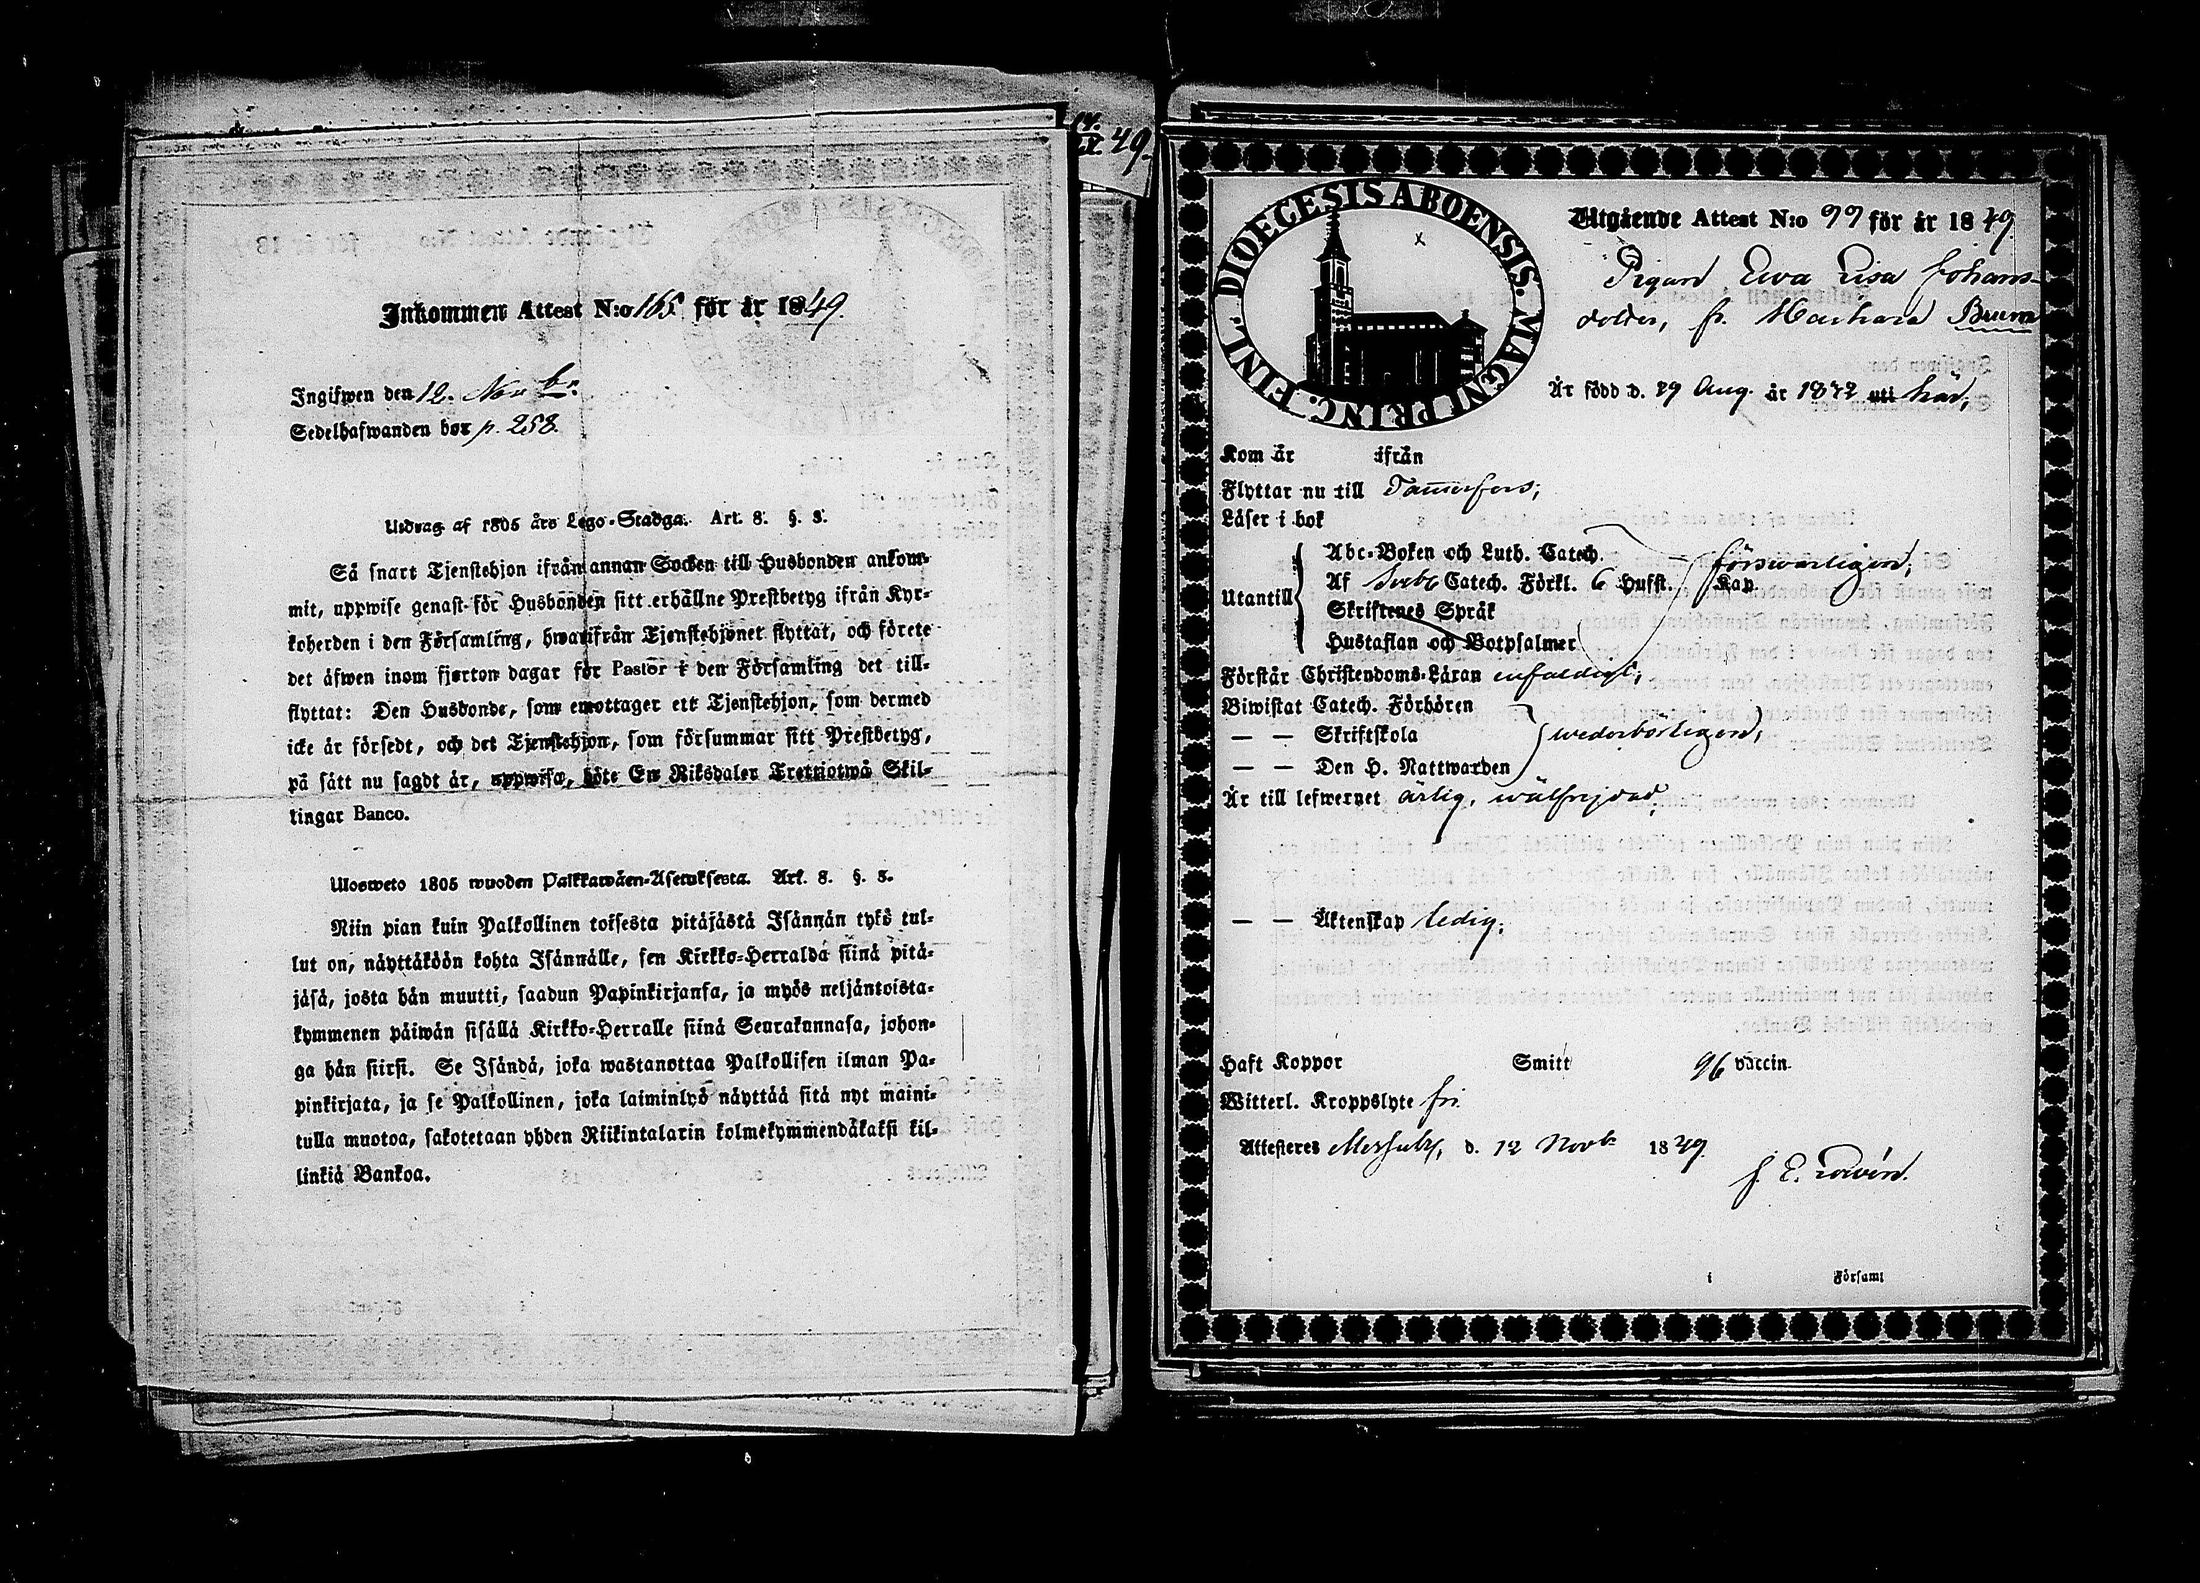 Inkommen Attest N:o 165 för år 1849.
Ingifwen den 12. Novbr.
Sedelhafwanden bor p. 258.
Utdrag af 1805 års Lego-Stadga. Art. 8. §. 3.
Så snart Tjenstehjon ifrån annan Socken till Husbonden ankom-
mit, uppwise genast för Husbonden sitt erhållne Prestbetyg ifrån Kyr-
koherden i den Församling, hwarifrån Tjenstehjonet flyttat, och förete
det äfwen inom fjorton dagar för Pastor i den Församling det till-
flyttat: Den Husbonde, som emottager ett Tjenstehjon, som dermed
icke är försedt, och det Tjenstehjon, som försummar sitt Prestbetyg,
på sätt nu sagdt är, uppwisa, böte En Riksdaler Trettiotwå Skil-
lingar Banco.
Ulosweto 1805 wuoden Palkkawäen-Asetuksesta. Art. 8. §. 3.
Niin pian kuin Palkollinen toisesta pitäjästä Isännän tykö tul-
lut on, näyttäköön kohta Isännälle, sen Kirkko-Herralda siinä pitä-
jäsä, josta hän muutti, saadun Papinkirjansa, ja myös neljäntoista-
kymmenen päiwän sisällä Kirkko-Herralle siinä Seurakunnasa, johon-
ga hän siirsi. Se Isändä, joka wastanottaa Palkollisen ilman Pa-
pinkirjata, ja se Palkollinen, joka laiminlyö näyttää sitä nyt maini-
tulla muotoa, sakotetaan yhden Riikintalarin kolmekymmendäkaksi kil-
linkiä Bankoa.
49.
DIOECESIS ABOENSIS. MAGNI PRINC. FINL.
Utgående Attest N:o 99 för år 1849.
Pigan Ewa Lisa Johans-
dotter, fr. Markara Bruun
År född d. 29 Aug. år 1822 uti här,
Kom år ifrån
Flyttar nu till Tammerfors;
Läser i bok
Abc-Boken och Luth. Catech. försvarligen;
Utantill Af Svebc Catech. Förkl. 6 Hufst. Kap
Skriftenes Språk
Hustaflan och Botpsalmer
Förstår Christendoms-Läran enfaldigt;
Biwistat Catech. Förhören
— — Skriftskola wederbörligen;
— — Den H. Nattwarden
Är till lefwernet ärlig, wälfrejdad,
— — Äktenskap ledig;
Haft Koppor Smitt vaccin.
Witterl. Kroppslyte fri
Attesteres Messuby, d. 12 Novbr 1849.
J. E. Lowén.
i Församl